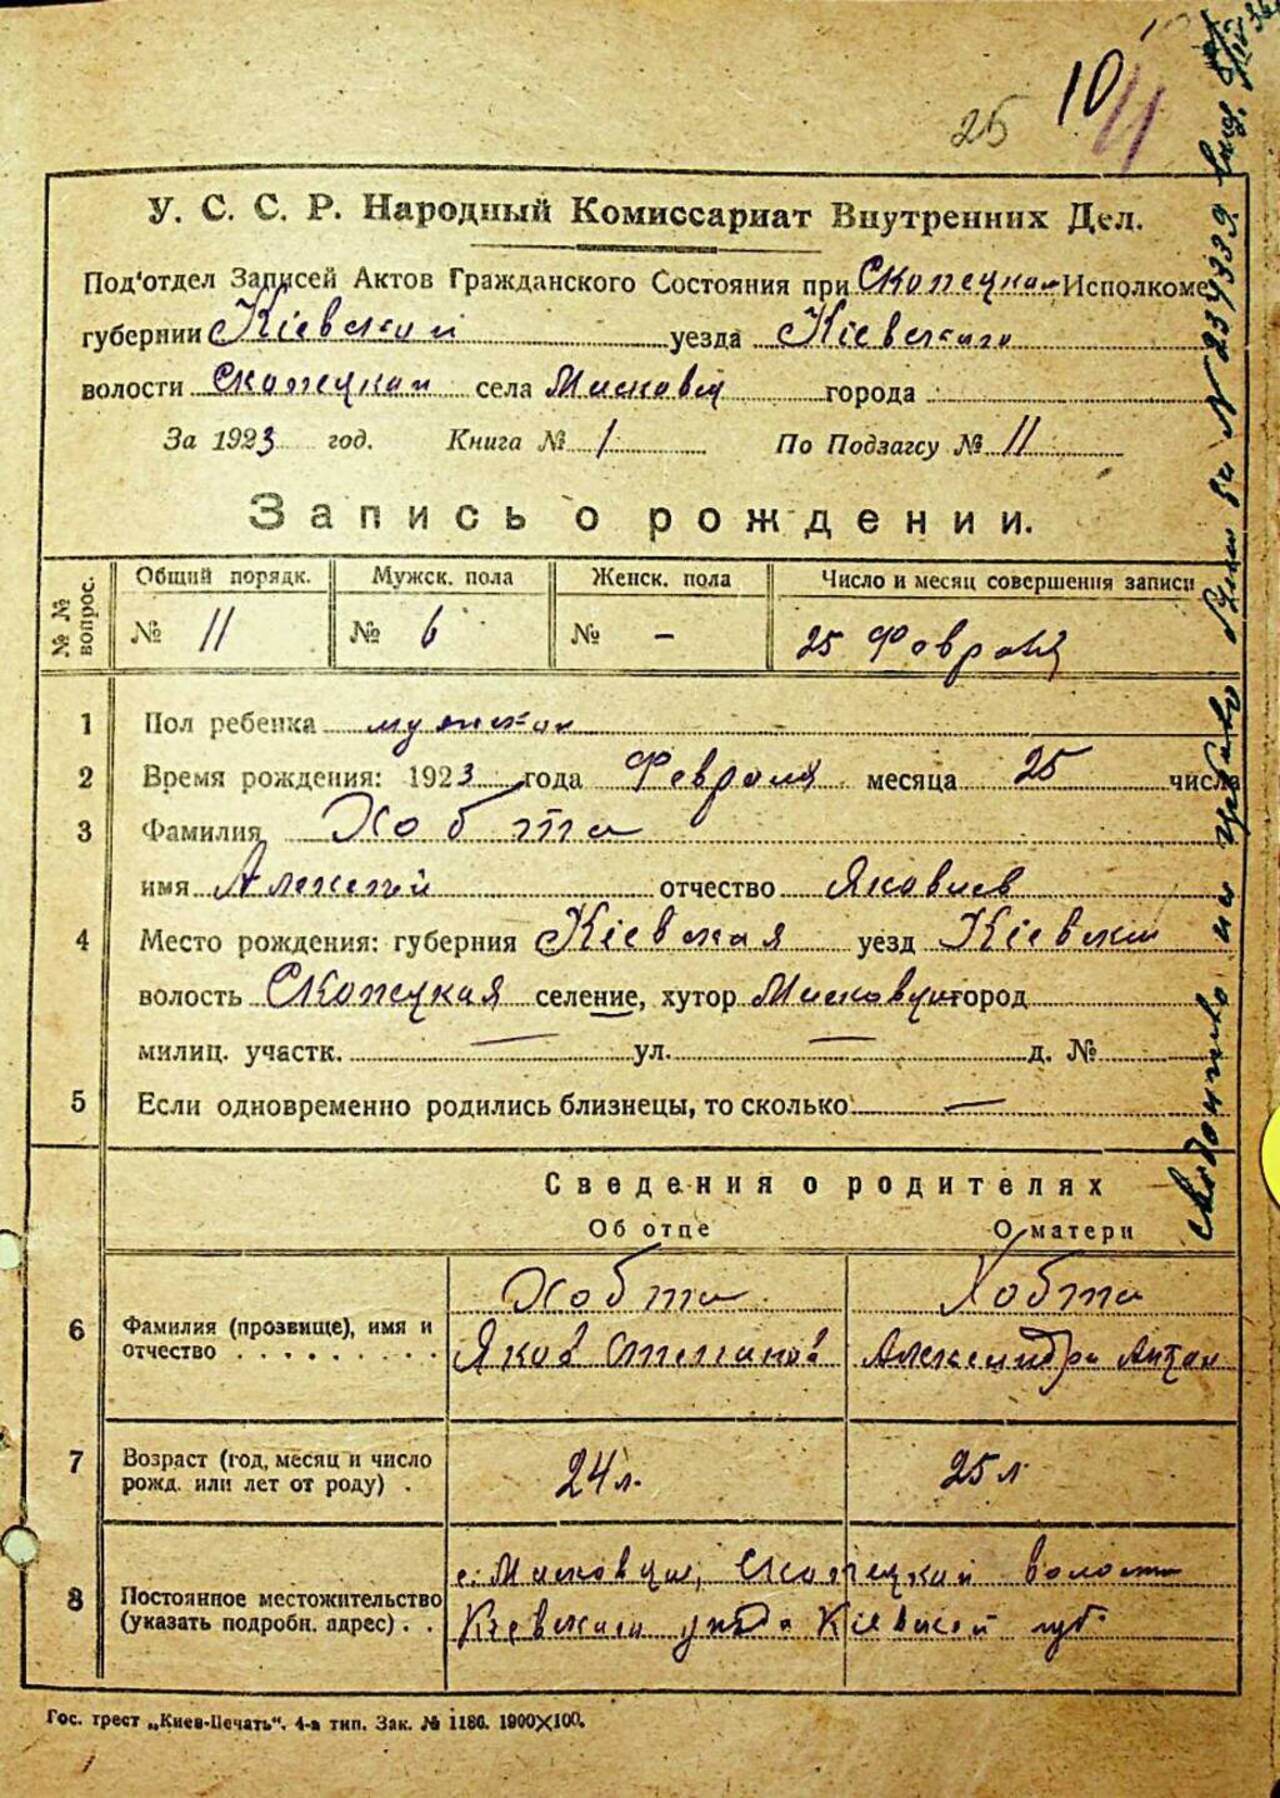 25 10 11
У. С. С. Р. Народный Комиссариат Внутренних Дел.
Под'отдел Записей Актов Гражданского Состояния при Скопецком Исполкоме
губернии Кіевской уезда Кіевскаго
волости Скопецкой села города
За 1923 год. Книга № 1 По Подзагсу № 11
Запись о рождении.
№ № вопрос.
Общий порядк. Мужск. пола Женск. пола Число и месяц совершения записи
№ 11 № 6 № - 25 Февраля
1 Пол ребенка мужской
2 Время рождения: 1923 года Февраля месяца 25 числа
3 Фамилия Хобта
имя Алексей отчество Яковлев
4 Место рождения: губерния Кіевская уезд Кіевский
волость Скопецкая селение, хутор город
милиц. участк. — ул. — д. №
5 Если одновременно родились близнецы, то сколько —
Сведения о родителях
Об отце О матери
6 Фамилия (прозвище), имя и отчество Хобта Хобта
Яков Степанов Александра Антон
7 Возраст (год, месяц и число рожд. или лет от роду) 24 л. 25 л.
8 Постоянное местожительство (указать подробн. адрес) с. Скопецкой волости
Кіевскаго уезда Кіевской губ.
Гос. трест „Киев-Печать". 4-а тип. Зак. № 1186. 1900×100.